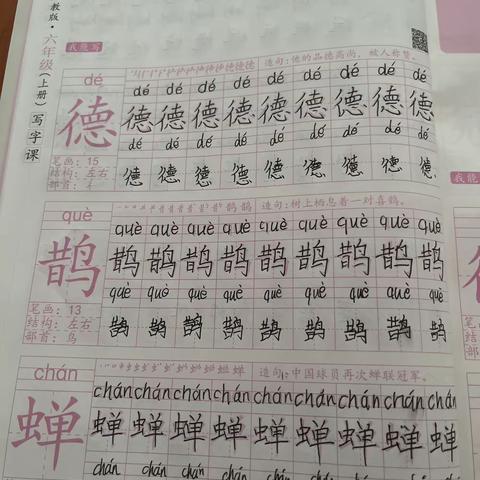 教版·六年级(上册)写字课
我能写
造句:他的品德高尚,被人称赞。
dé
dé dé dé dé dé dé dé dé dé
德 德 德 德 德 德 德 德 德 德
dé dé dé dé dé dé dé dé dé
笔画:15
结构:左右
部首:彳
德 德 德 德 德 德 德 德 德
造句:树上栖息着一对喜鹊。
què
què què què què què què què què què
鹊 鹊 鹊 鹊 鹊 鹊 鹊 鹊 鹊 鹊
què què què què què què què què què
笔画:13
结构:左右
部首:鸟
鹊 鹊 鹊 鹊 鹊 鹊 鹊 鹊 鹊
造句:中国球员再次蝉联冠军。
chán
chán chán chán chán chán chán chán chán chán
蝉 蝉 蝉 蝉 蝉 蝉 蝉 蝉 蝉 蝉
chán chán chán chán
我能